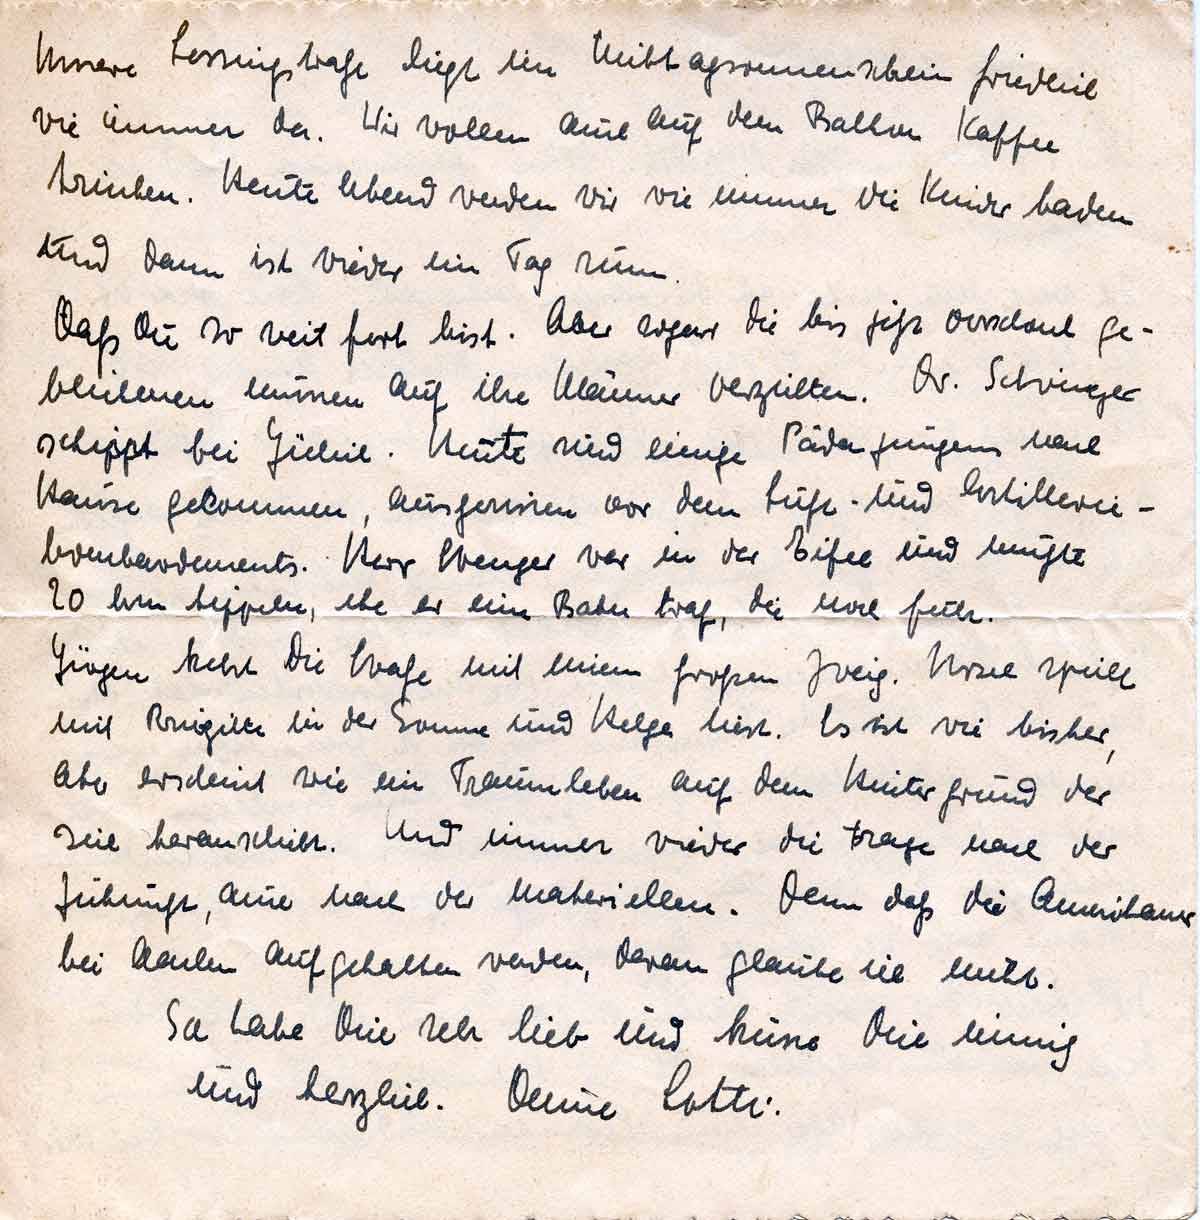 Unsere Lessingstraße liegt im Mittagsonnenschein friedlich
wie immer da. Wir wollen auch auf dem Balkon Kaffee
trinken. Heute Abend werden wir wie immer die Kinder baden
und dann ist wieder ein Tag rum.
Daß Du so weit fort bist. Aber sogar die bis jetzt verschont ge-
bliebenen müssen auf ihre Männer verzichten. Dr. Schwinger
schippt bei Jülich. Heute sind einige Pädajungens nach
Hause gekommen, ausgerissen vor dem Luft- und Artillerie-
bombardements. Herr Wenger war in der Eifel und mußte
20 km tippeln, ehe er eine Bahn traf, die noch fuhr.
Jürgen kehrt die Straße mit einem großen Zweig. Ursel spielt
mit Brigitte in der Sonne und Helge liest. Es ist wie bisher,
aber erscheint wie ein Traumleben auf dem Hintergrund der
sich heranschiebt. Und immer wieder die Frage nach der
Zukunft, auch nach der materiellen. Denn daß die Amerikaner
bei Aachen aufgehalten werden, daran glaube ich nicht.
Sa habe Dich sehr lieb und küsse Dich innig
und herzlich. Deine Lotti.